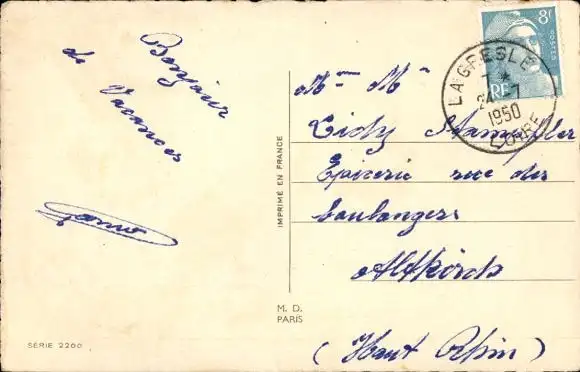 Bonjour
de Vacances
SÉRIE 2200
IMPRIMÉ EN FRANCE
M. D.
PARIS
8f
RF
LA GRESLE
1950
LOIRE
Mme Mr
Epicerie rue des
boulangers
Altkirch
(Haut Rhin)